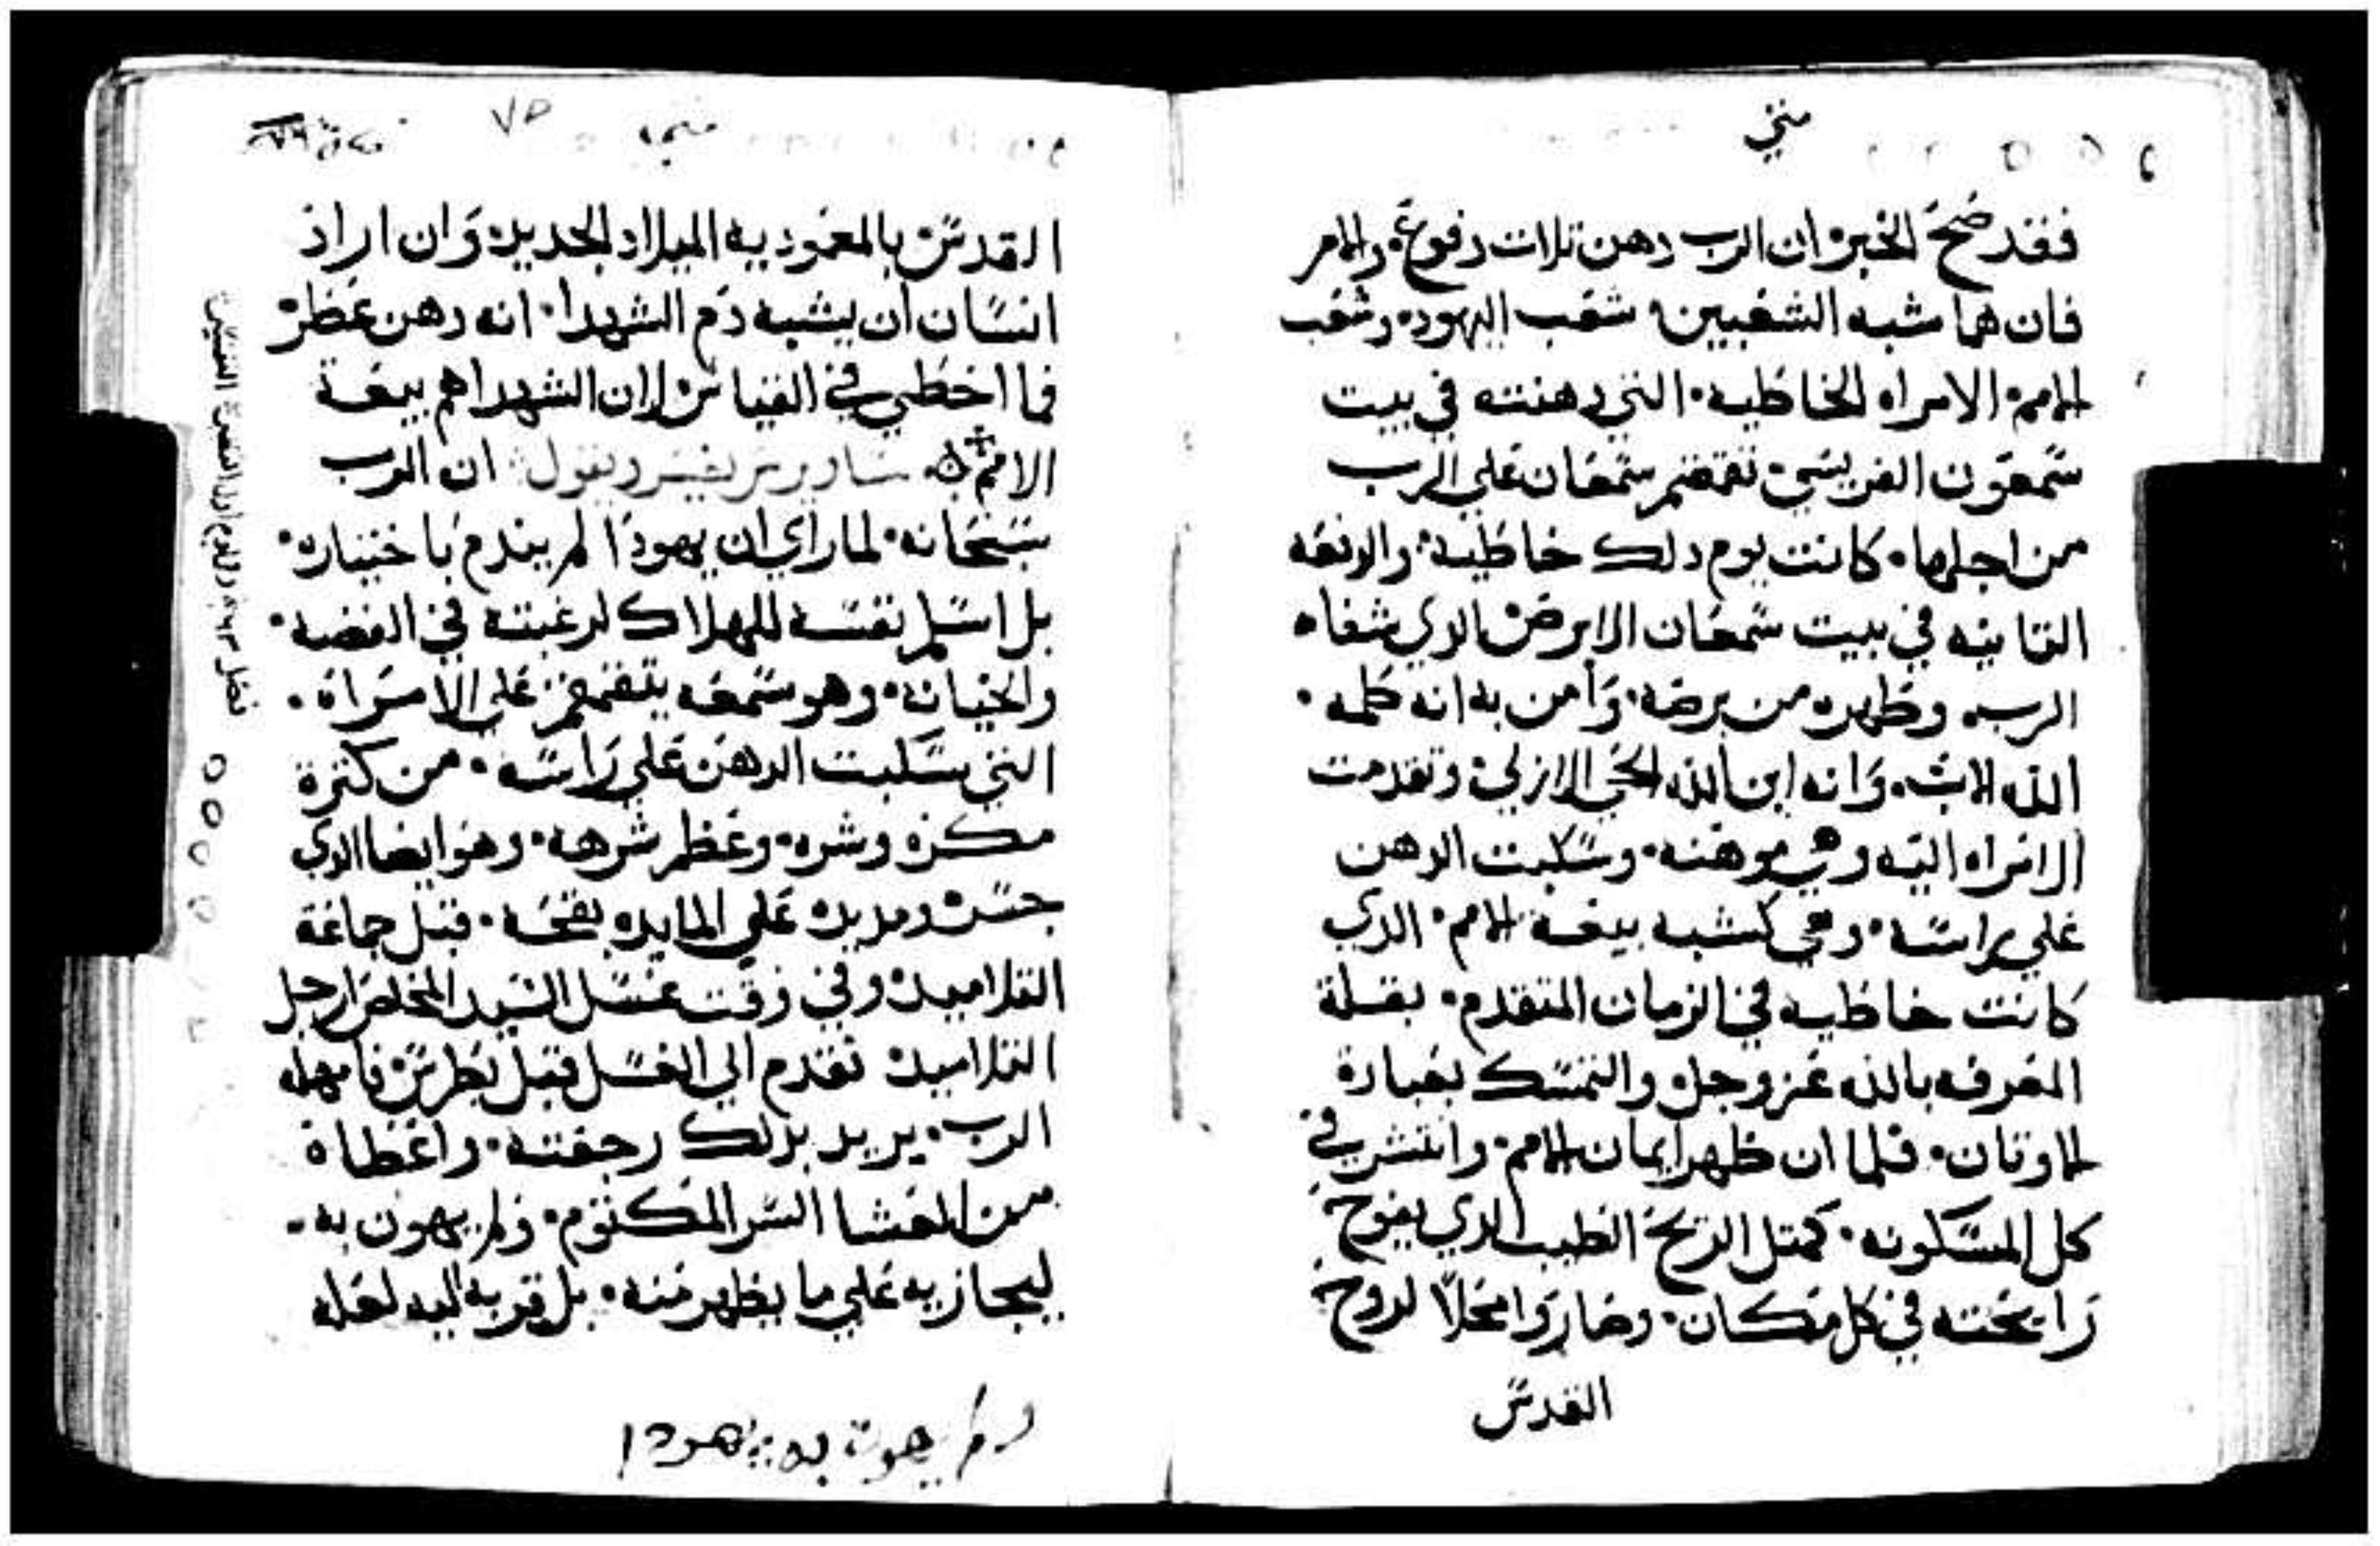 متي
فقد صح الخبر ان الرب دهن تلات دفوع والامر
فان هما شبه الشعبين شعب اليهود وشعب
الامم الامراه الخاطيه التي دهنته في بيت
سمعون الفريسي تقمقم سمعان علي الرب
من اجلها كانت يوم دلك خاطيه والدفعه
التانيه في بيت سمعان الابرص الدي شفاه
الرب وطهره من برصه وامن به انه كلمه
الله الاب وانه ابن الله الحي الازلي وتقدمت
الامراه اليه وهي موهنه وسكبت الدهن
علي راسه وهي كشبه بيعة الامم الدي
كانت خاطيه في الزمان المتقدم بقلة
المعرفه بالله عز وجل والتمسك بعبادة
الاوتان فلما ان ظهر ايمان الامم وانتشر في
كل المسكونه كمتل الريح الطيب الدي يفوح
رايحته في كل مكان وصاروا محلا لروح
القدس
متي
القدس بالمعموديه الميلاد الجديد وان اراد
انسان ان يشبه دم الشهدا انه دهن عطر
فما اخطي في القياس لان الشهدا هم بيعة
الامم ساويرس يفسر ويقول ان الرب
سبحانه لما راي ان يهودا لم يندم باختياره
بل اسلم نفسه للهلاك لرغبته في الفضه
والخيانه وهو سمعه يتقمقم علي الامراة
التي سكبت الدهن علي راسه من كترة
مكره وشره وعظم شرهه وهو ايضا الدي
جسر ومد يده علي المايده بقحه قبل جماعة
التلاميد وفي وقت غسل السيد المخلص ارجل
التلاميد تقدم الي الغسل قبل بطرس فامهله
الرب يريد بدلك رجعته واعطاة
من العشا السر المكتوم ولم يهون به
ليجازيه علي ما يظهر منه بل قربه اليه لعله
ولم يهون به يهودا